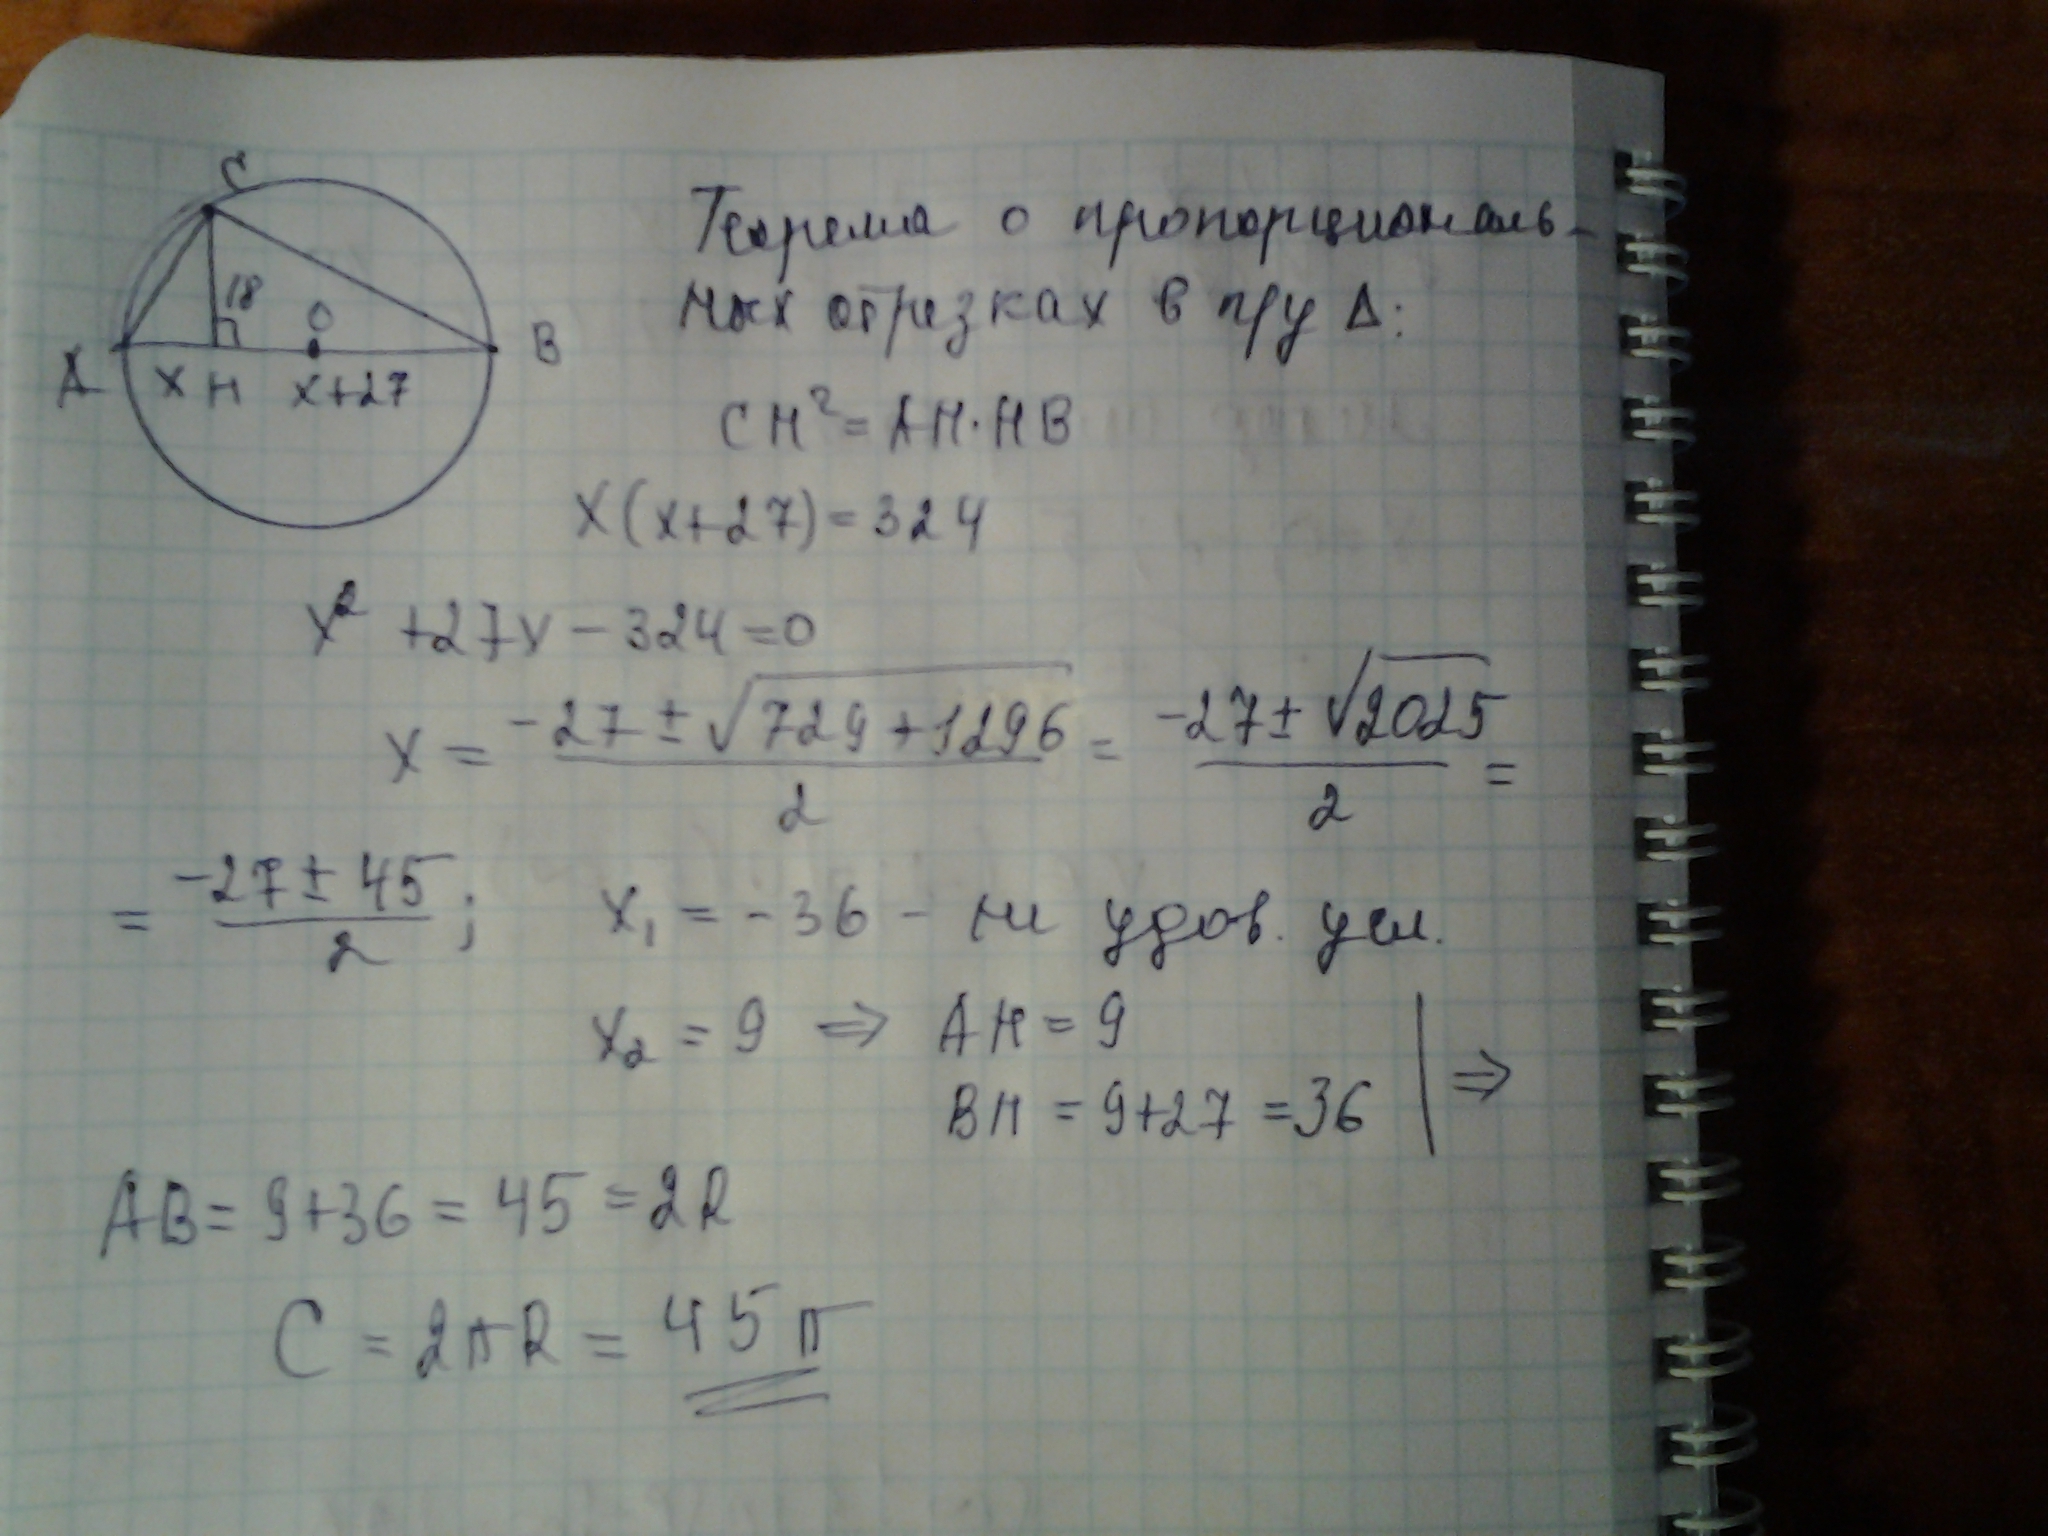 C
18
O
A
B
x H x+27
Теорема о пропорциональ-
ных отрезках в пру Δ:
CH² = AH·HB
x(x+27)=324
x² +27x - 324=0
x = (-27 ± √(729+1296))/2 = (-27 ± √2025)/2 =
= (-27 ± 45)/2 ; x₁ = -36 - не удов. усл.
x₂ = 9 ⇒ AH = 9
BH = 9+27 =36 | ⇒
AB= 9+36 = 45 =2R
C = 2πR = 45π